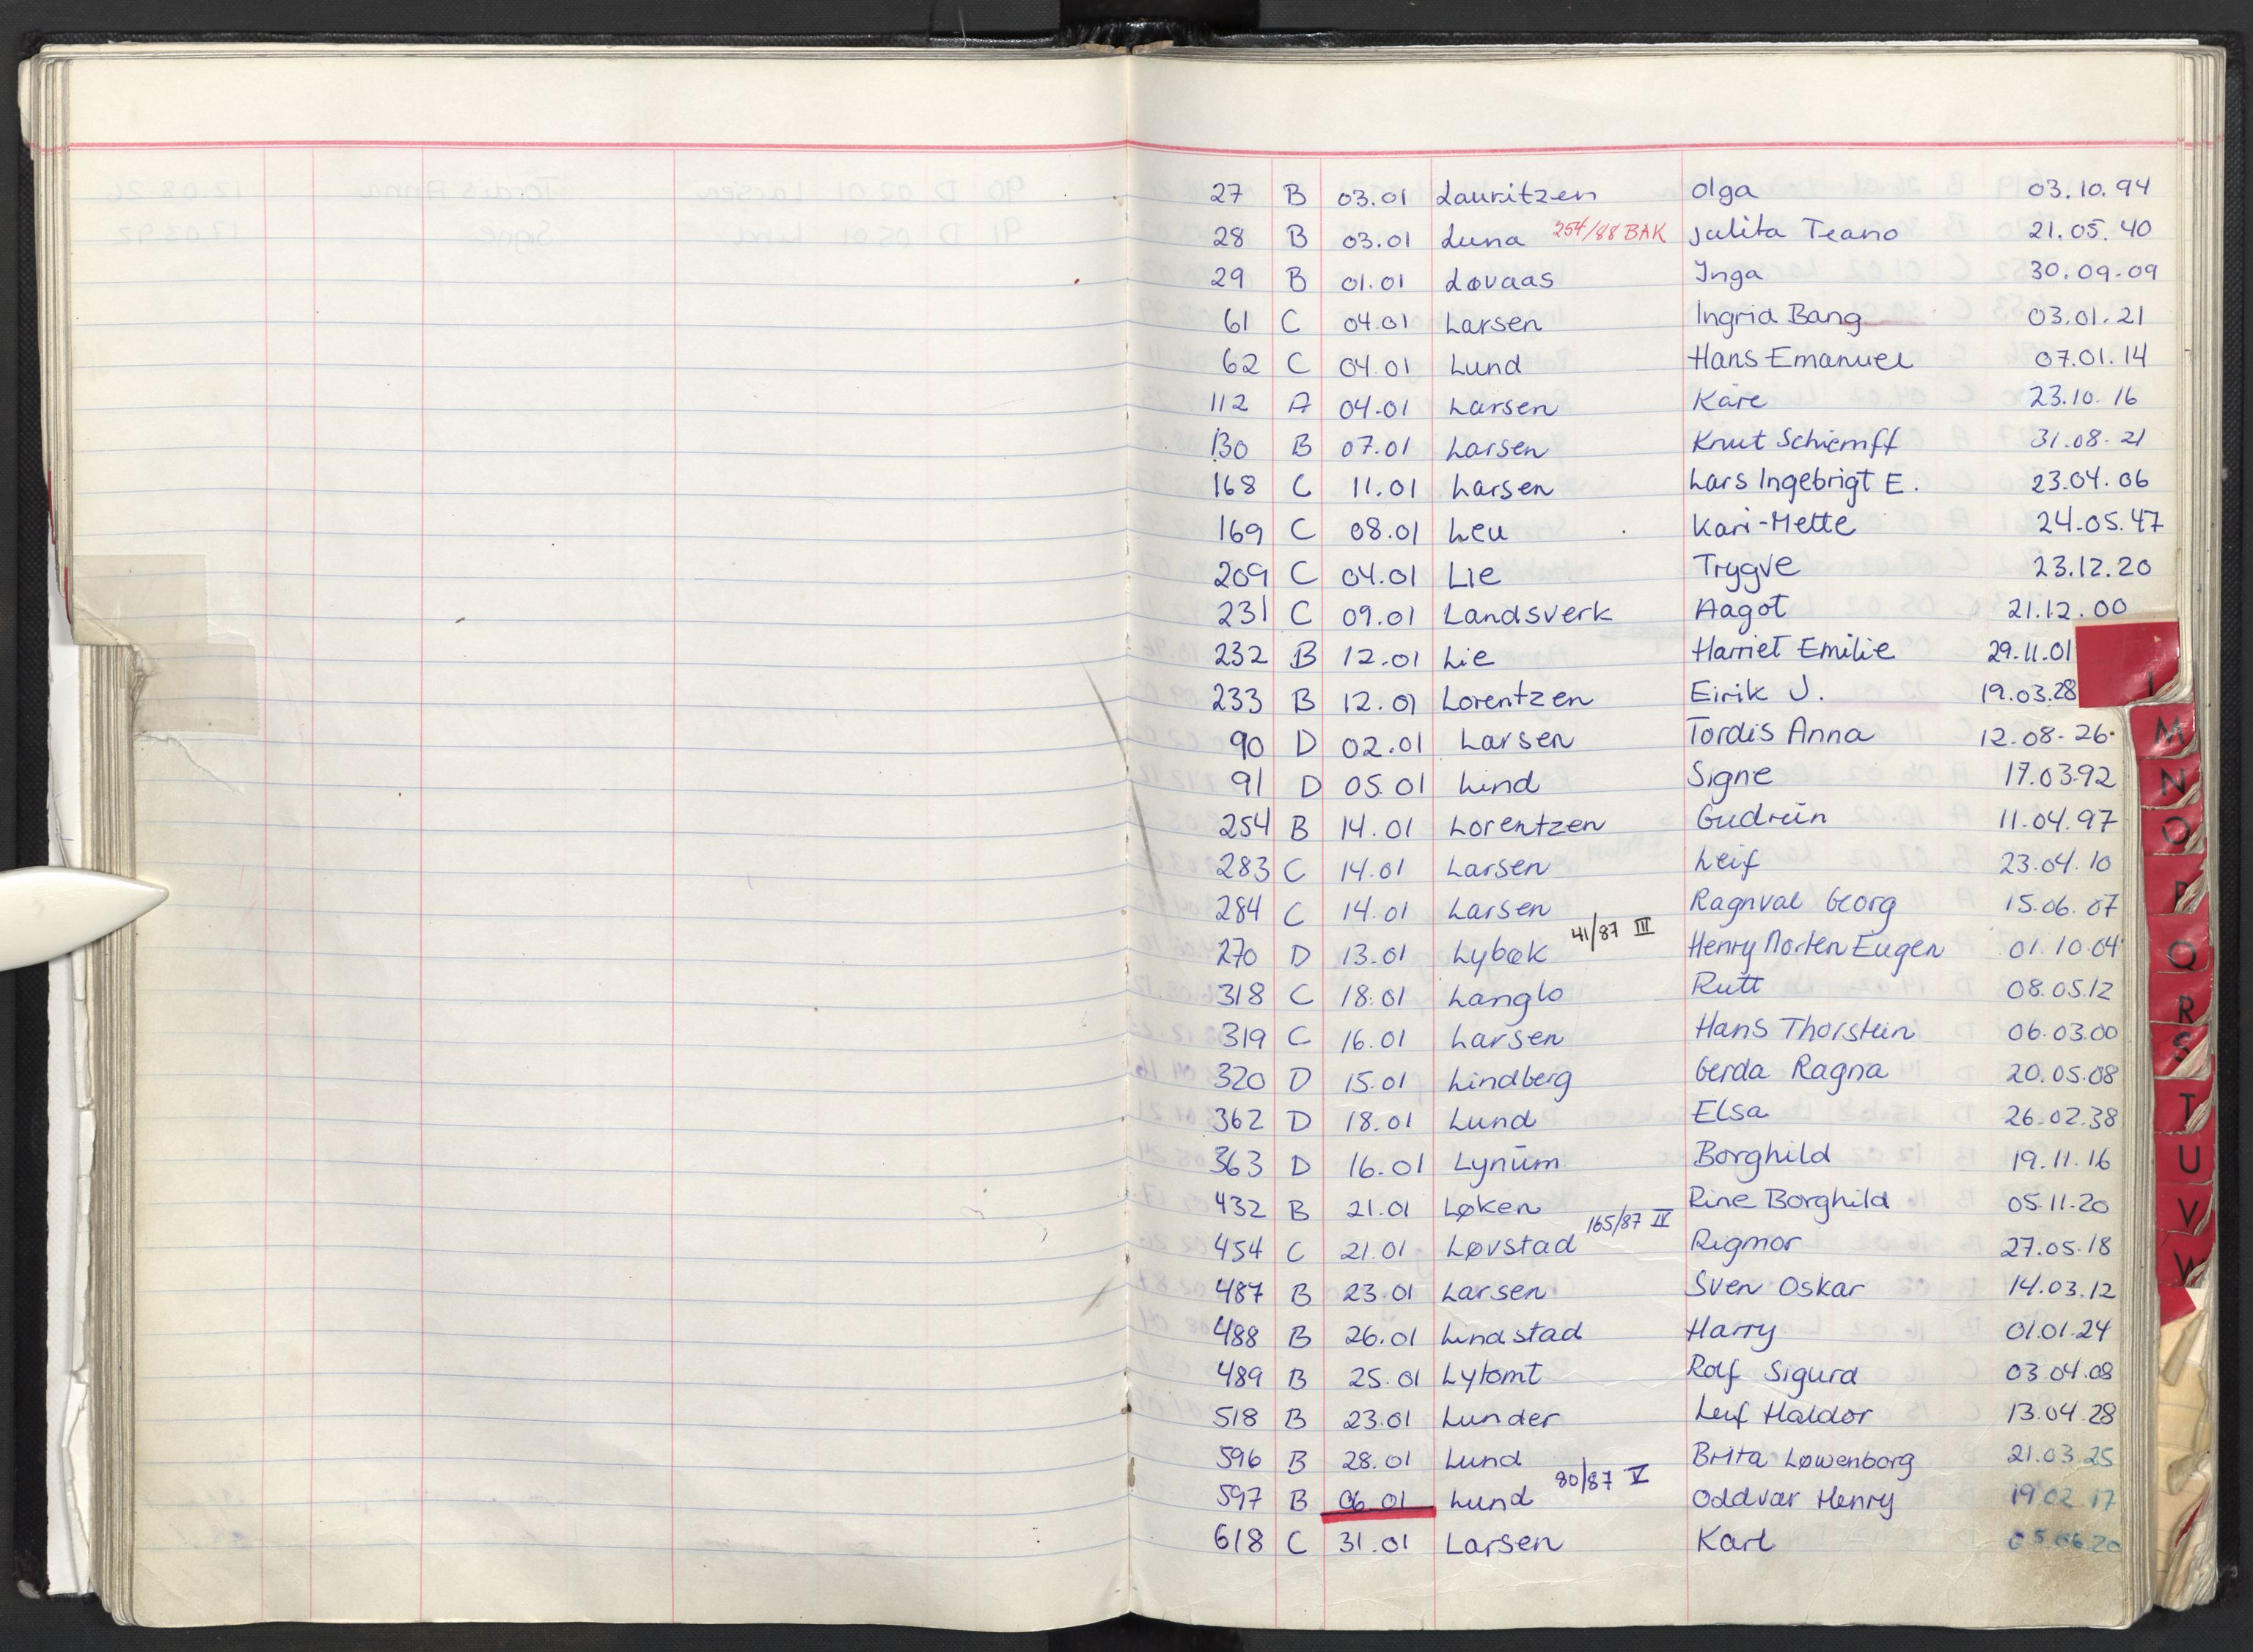 27 B 03.01 Lauritzen Olga 03.10.94
28 B 03.01 Luna 254/88 BAK Julita Teano 21.05.40
29 B 01.01 Løvaas Inga 30.09.09
61 C 04.01 Larsen Ingrid Bang 03.01.21
62 C 04.01 Lund Hans Emanuel 07.01.14
112 A 04.01 Larsen Kåre 23.10.16
130 B 07.01 Larsen Knut 31.08.21
168 C 11.01 Larsen Lars Ingebrigt E. 23.04.06
169 C 08.01 Leu Kari-Mette 24.05.47
209 C 04.01 Lie Trygve 23.12.20
231 C 09.01 Landsverk Aagot 21.12.00
232 B 12.01 Lie Harriet Emilie 29.11.01
233 B 12.01 Lorentzen Eirik J. 19.03.28
90 D 02.01 Larsen Tordis Anna 12.08.26
91 D 05.01 Lind Signe 17.03.92
254 B 14.01 Lorentzen Gudrun 11.04.97
283 C 14.01 Larsen Leif 23.04.10
284 C 14.01 Larsen Ragnval Georg 15.06.07
270 D 13.01 Lybæk 41/87 III Henry Morten Eugen 01.10.04
318 C 18.01 Langlo Rutt 08.05.12
319 C 16.01 Larsen Hans Thorstein 06.03.00
320 D 15.01 Lindberg Gerda Ragna 20.05.08
362 D 18.01 Lund Elsa 26.02.38
363 D 16.01 Lynum Borghild 19.11.16
432 B 21.01 Løken Rine Borghild 05.11.20
454 C 21.01 Løvstad 165/87 IV Rigmor 27.05.18
487 B 23.01 Larsen Sven Oskar 14.03.12
488 B 26.01 Lindstad Harry 01.01.24
489 B 25.01 Lytomt Rolf Sigurd 03.04.08
518 B 23.01 Lunder Leif Haldor 13.04.28
596 B 28.01 Lund Brita Løwenborg 21.03.25
597 B 06.01 Lund 80/87 V Oddvar Henry 19.02.17
618 C 31.01 Larsen Karl 05.06.20
M
N
O
P
Q
R
S
T
U
V
W